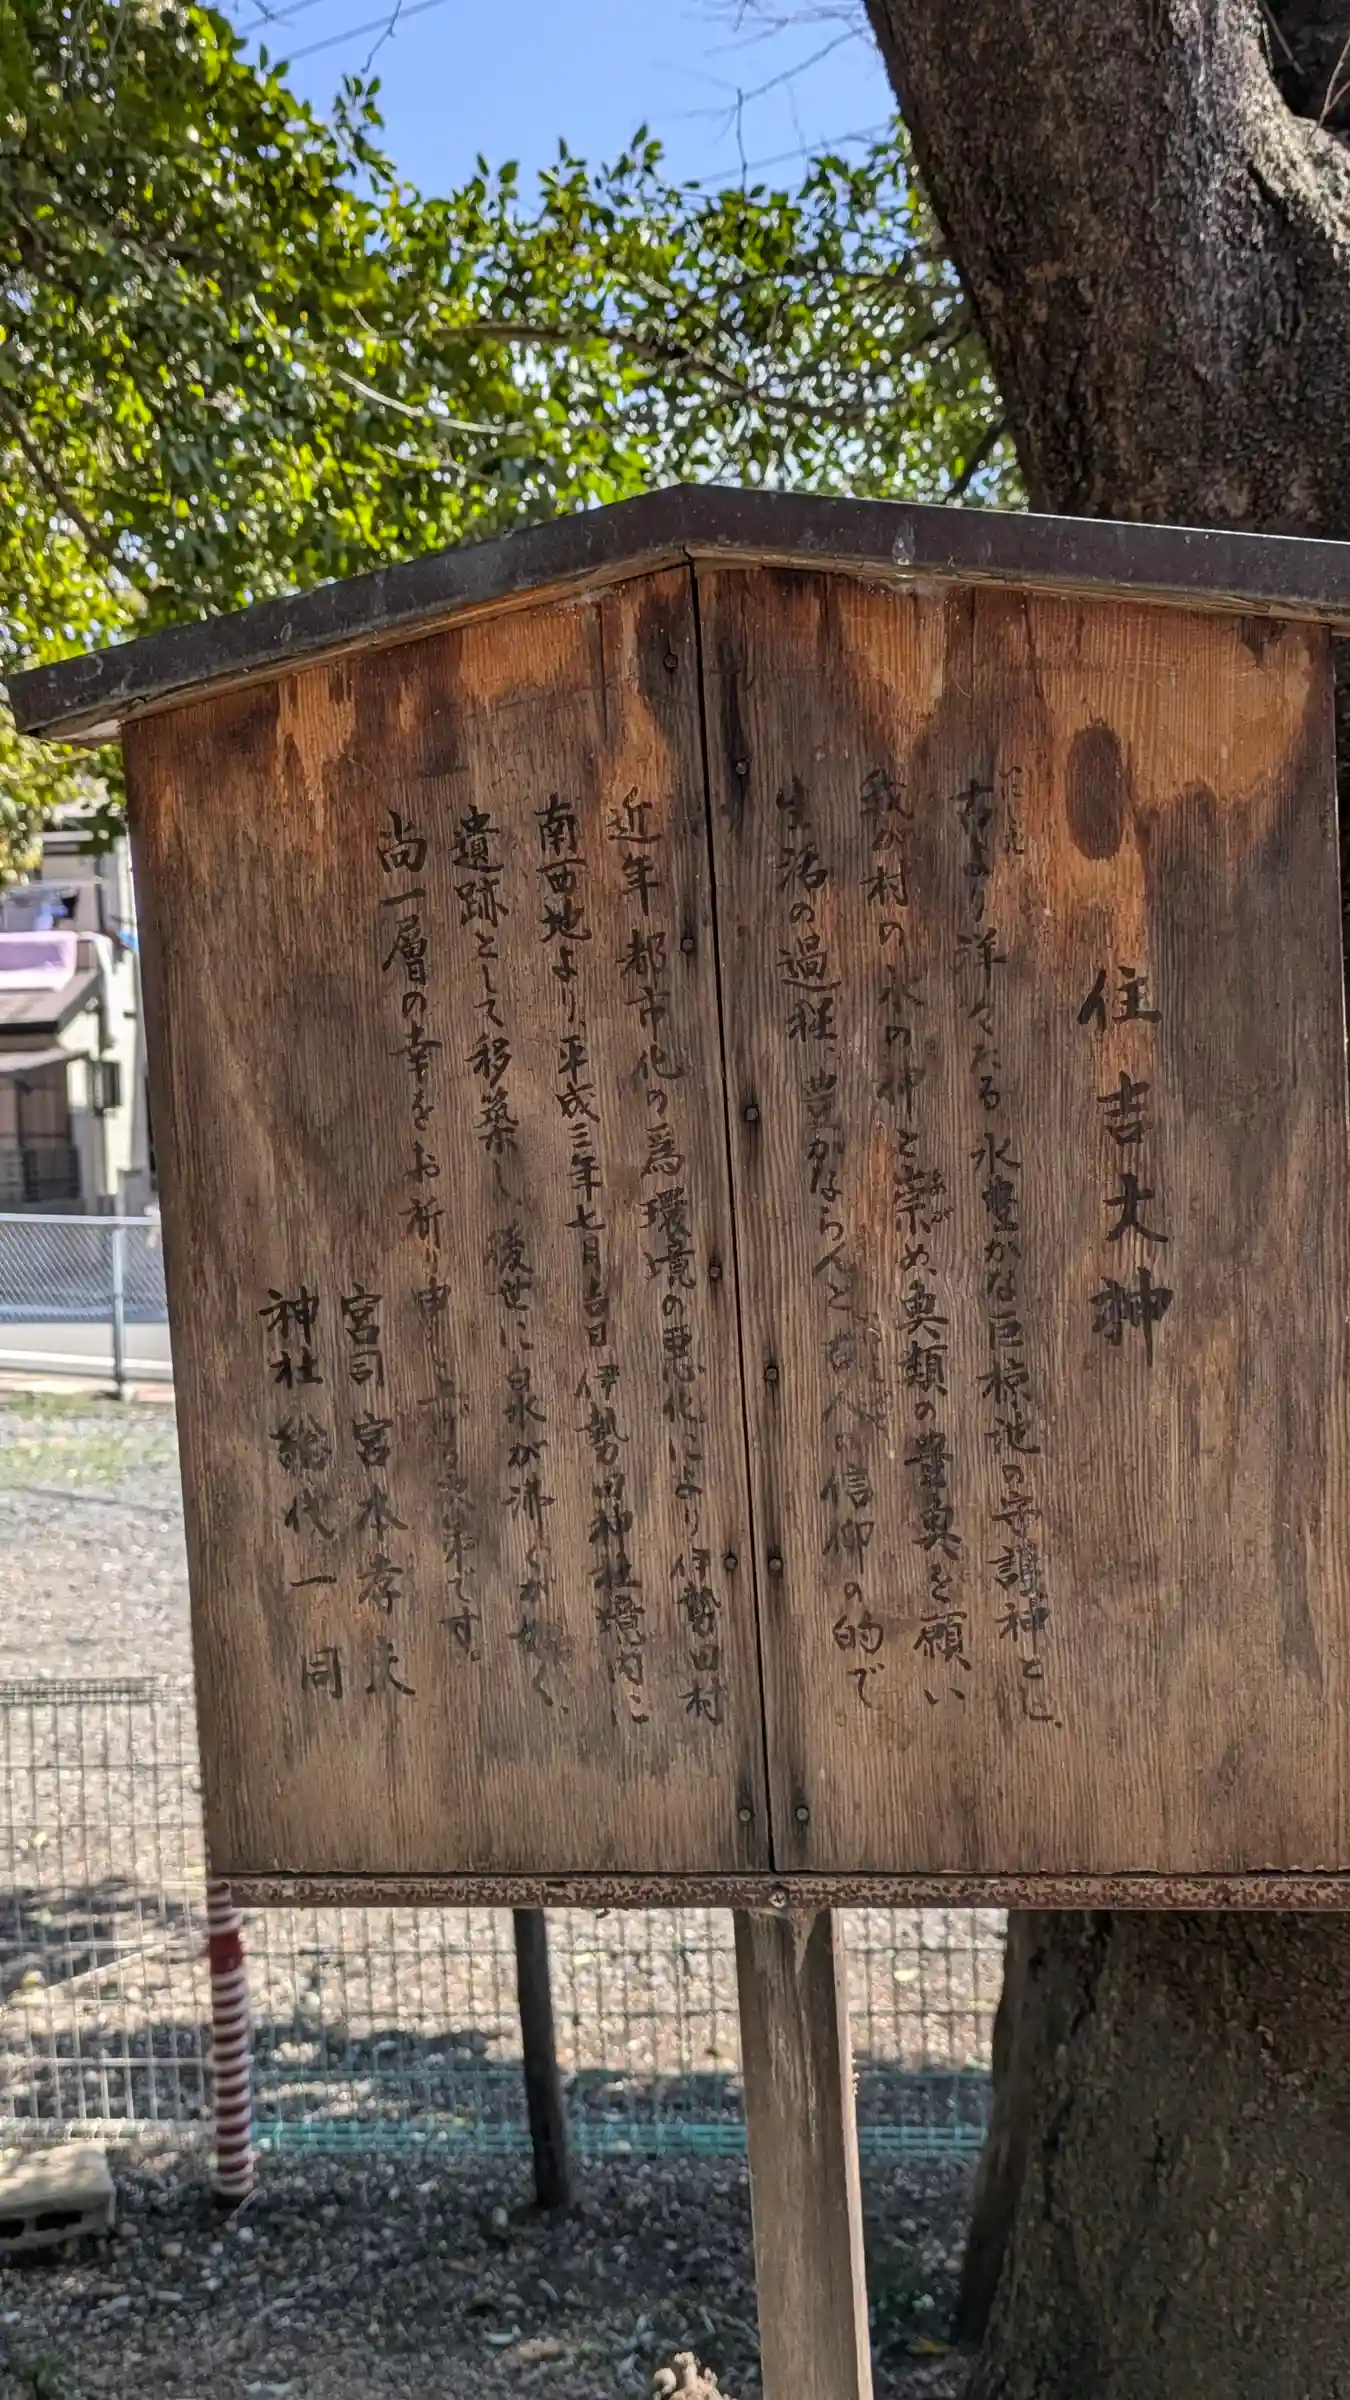 住吉大神
いにしえ
古より洋々たる水豊かな巨椋池の守護神とし、
我が村の水の神と崇め、魚類の豊魚を願い
あが
生活の過程、豊かならんと古人の信仰の的で
近年都市化の為環境の悪化により伊勢田村
南西地より、平成三年七月吉日伊勢田神社境内に
遺跡として移築し、後世に泉が沸くが如く、
尚一層の幸をお祈り申し上げる次第です。
宮司 宮本孝夫
神社総代一同